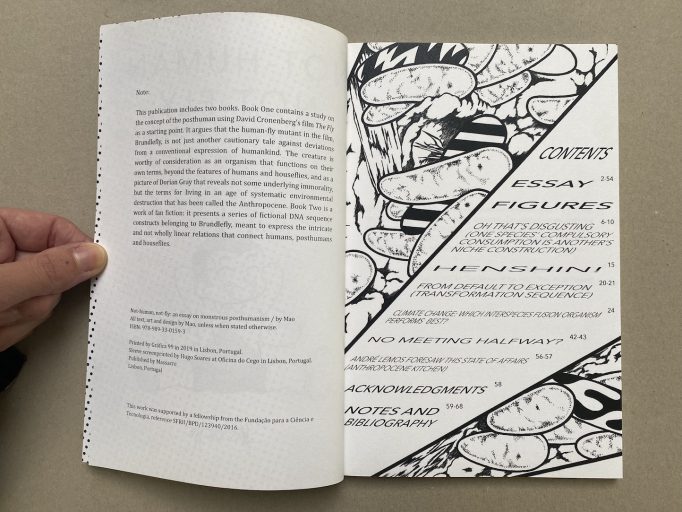 Note:
This publication includes two books. Book One contains a study on
the concept of the posthuman using David Cronenberg's film The Fly
as a starting point. It argues that the human-fly mutant in the film,
Brundlefly, is not just another cautionary tale against deviations
from a conventional expression of humankind. The creature is
worthy of consideration as an organism that functions on their
own terms, beyond the features of humans and houseflies, and as a
picture of Dorian Gray that reveals not some underlying immorality,
but the terms for living in an age of systemic environmental
destruction that has been called the Anthropocene. Book Two is a
work of fan fiction: it presents a series of fictional DNA sequence
constructs belonging to Brundlefly, meant to express the intricate
and not wholly linear relations that connect humans, posthumans
and houseflies.
Not-human, not-fly: an essay on monstrous posthumanism / by Mao
All text, art and design by Mao, unless when stated otherwise.
ISBN: 978-989-33-0159-3
Printed by Gráfica 99 in 2019 in Lisbon, Portugal.
Sleeve screenprinted by Hugo Soares at Oficina do Cego in Lisbon, Portugal.
Published by Massacre
Lisbon, Portugal
This work was supported by a fellowship from the Fundação para a Ciência e
Tecnologia, reference SFRH/BPD/123940/2016.
CONTENTS
ESSAY 2-54
FIGURES
OH THAT'S DISGUSTING 6-10
(ONE SPECIES' COMPULSORY
CONSUMPTION IS ANOTHER'S
NICHE CONSTRUCTION)
HENSHIN! 15
FROM DEFAULT TO EXCEPTION 20-21
(TRANSFORMATION SEQUENCE)
CLIMATE CHANGE: WHICH INTERSPECIES FUSION ORGANISM 24
PERFORMS BEST?
NO MEETING HALFWAY? 42-43
ANDRÉ LEMOS FORESAW THIS STATE OF AFFAIRS 56-57
(ANTHROPOCENE KITCHEN)
ACKNOWLEDGMENTS 58
NOTES AND 59-68
BIBLIOGRAPHY